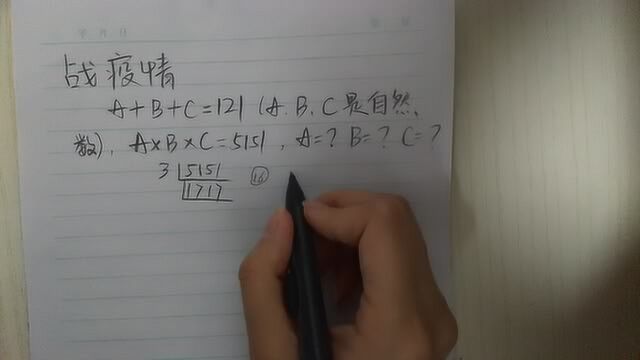 战疫情
A+B+C=121(A、B、C是自然
数)，A×B×C=5151，A=? B=? C=?
3 5151
1717